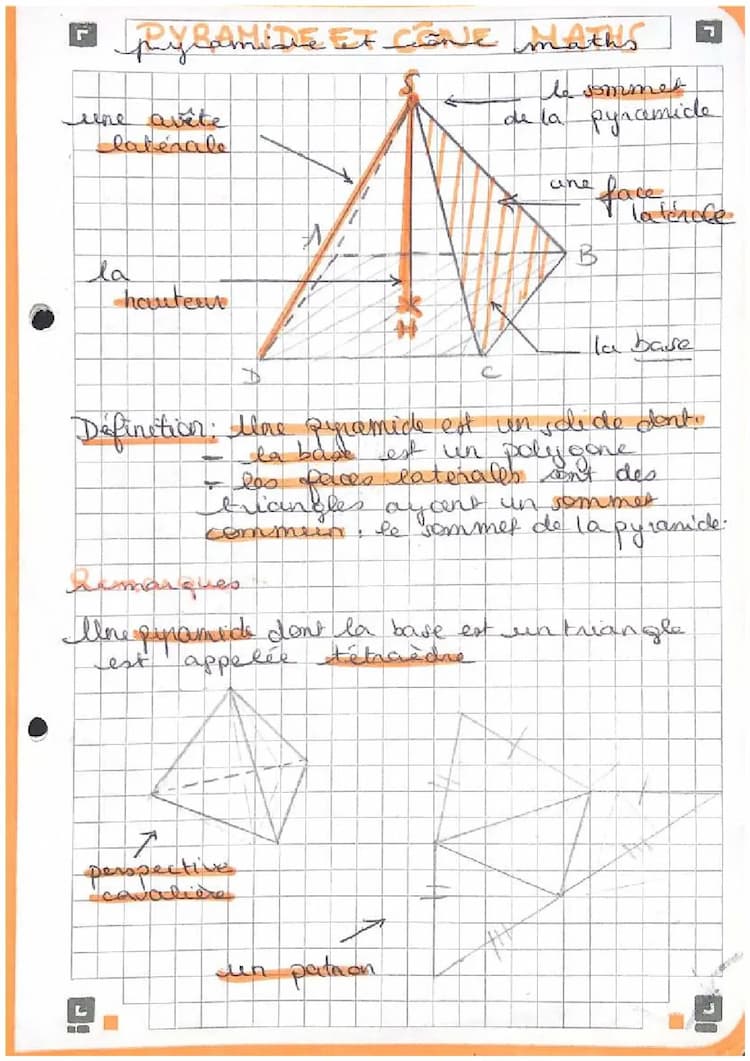 PYRAMIDE ET CÔNE MATHS
pyramide et cône maths
S
le sommet
de la pyramide
une arête
latérale
une face
latérale
A
B
la
hauteur
H
la base
D
C
Définition: Une pyramide est un solide dont:
- la base est un polygone
- les faces latérales sont des
triangles ayant un sommet
commun : le sommet de la pyramide.
Remarques:
Une pyramide dont la base est un triangle
est appelée tétraèdre
perspective
cavalière
un patron